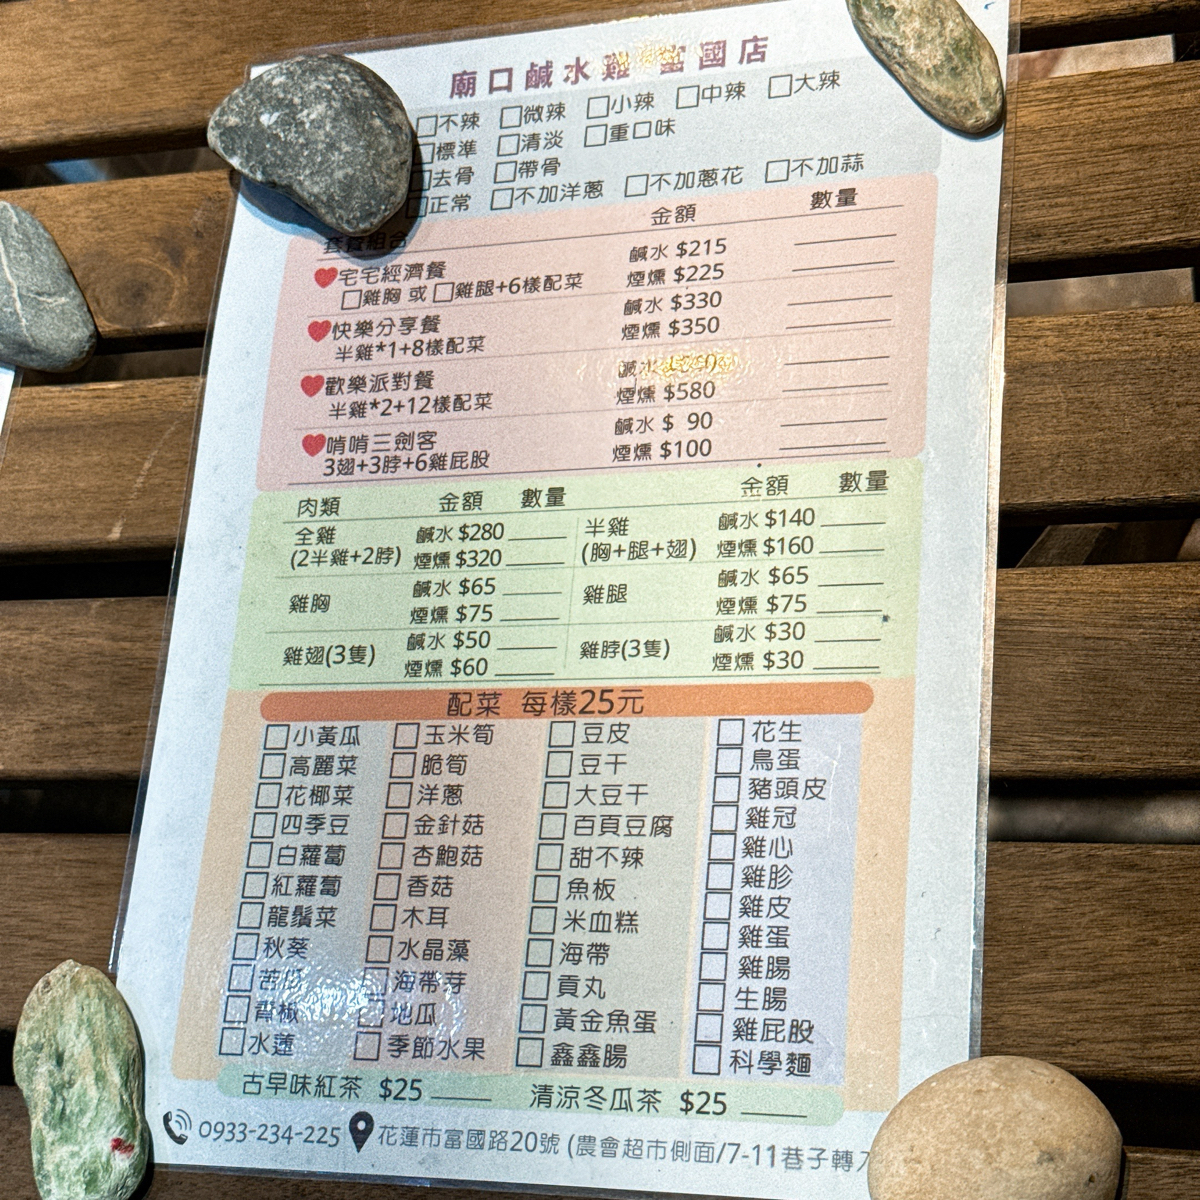 廟口鹹水雞 富國店
□不辣 □微辣 □小辣 □中辣 □大辣
□標準 □清淡 □重口味
□去骨 □帶骨
□正常 □不加洋蔥 □不加蔥花 □不加蒜
套餐組合 金額 數量
宅宅經濟餐 鹹水 $215
□雞胸 或 □雞腿+6樣配菜 煙燻 $225
快樂分享餐 鹹水 $330
半雞*1+8樣配菜 煙燻 $350
歡樂派對餐 鹹水
半雞*2+12樣配菜 煙燻 $580
啃啃三劍客 鹹水 $ 90
3翅+3脖+6雞屁股 煙燻 $100
肉類 金額 數量 金額 數量
全雞 鹹水 $280 半雞 鹹水 $140
(2半雞+2脖) 煙燻 $320 (胸+腿+翅) 煙燻 $160
雞胸 鹹水 $65 雞腿 鹹水 $65
煙燻 $75 煙燻 $75
雞翅(3隻) 鹹水 $50 雞脖(3隻) 鹹水 $30
煙燻 $60 煙燻 $30
配菜 每樣25元
□小黃瓜 □玉米筍 □豆皮 □花生
□高麗菜 □脆筍 □豆干 □鳥蛋
□花椰菜 □洋蔥 □大豆干 □豬頭皮
□四季豆 □金針菇 □百頁豆腐 □雞冠
□白蘿蔔 □杏鮑菇 □甜不辣 □雞心
□紅蘿蔔 □香菇 □魚板 □雞胗
□龍鬚菜 □木耳 □米血糕 □雞皮
□秋葵 □水晶藻 □海帶 □雞蛋
□苦瓜 □海帶芽 □貢丸 □雞腸
□青椒 □地瓜 □黃金魚蛋 □生腸
□水蓮 □季節水果 □鑫鑫腸 □雞屁股
□科學麵
古早味紅茶 $25 清涼冬瓜茶 $25
0933-234-225 花蓮市富國路20號 (農會超市側面/7-11巷子轉